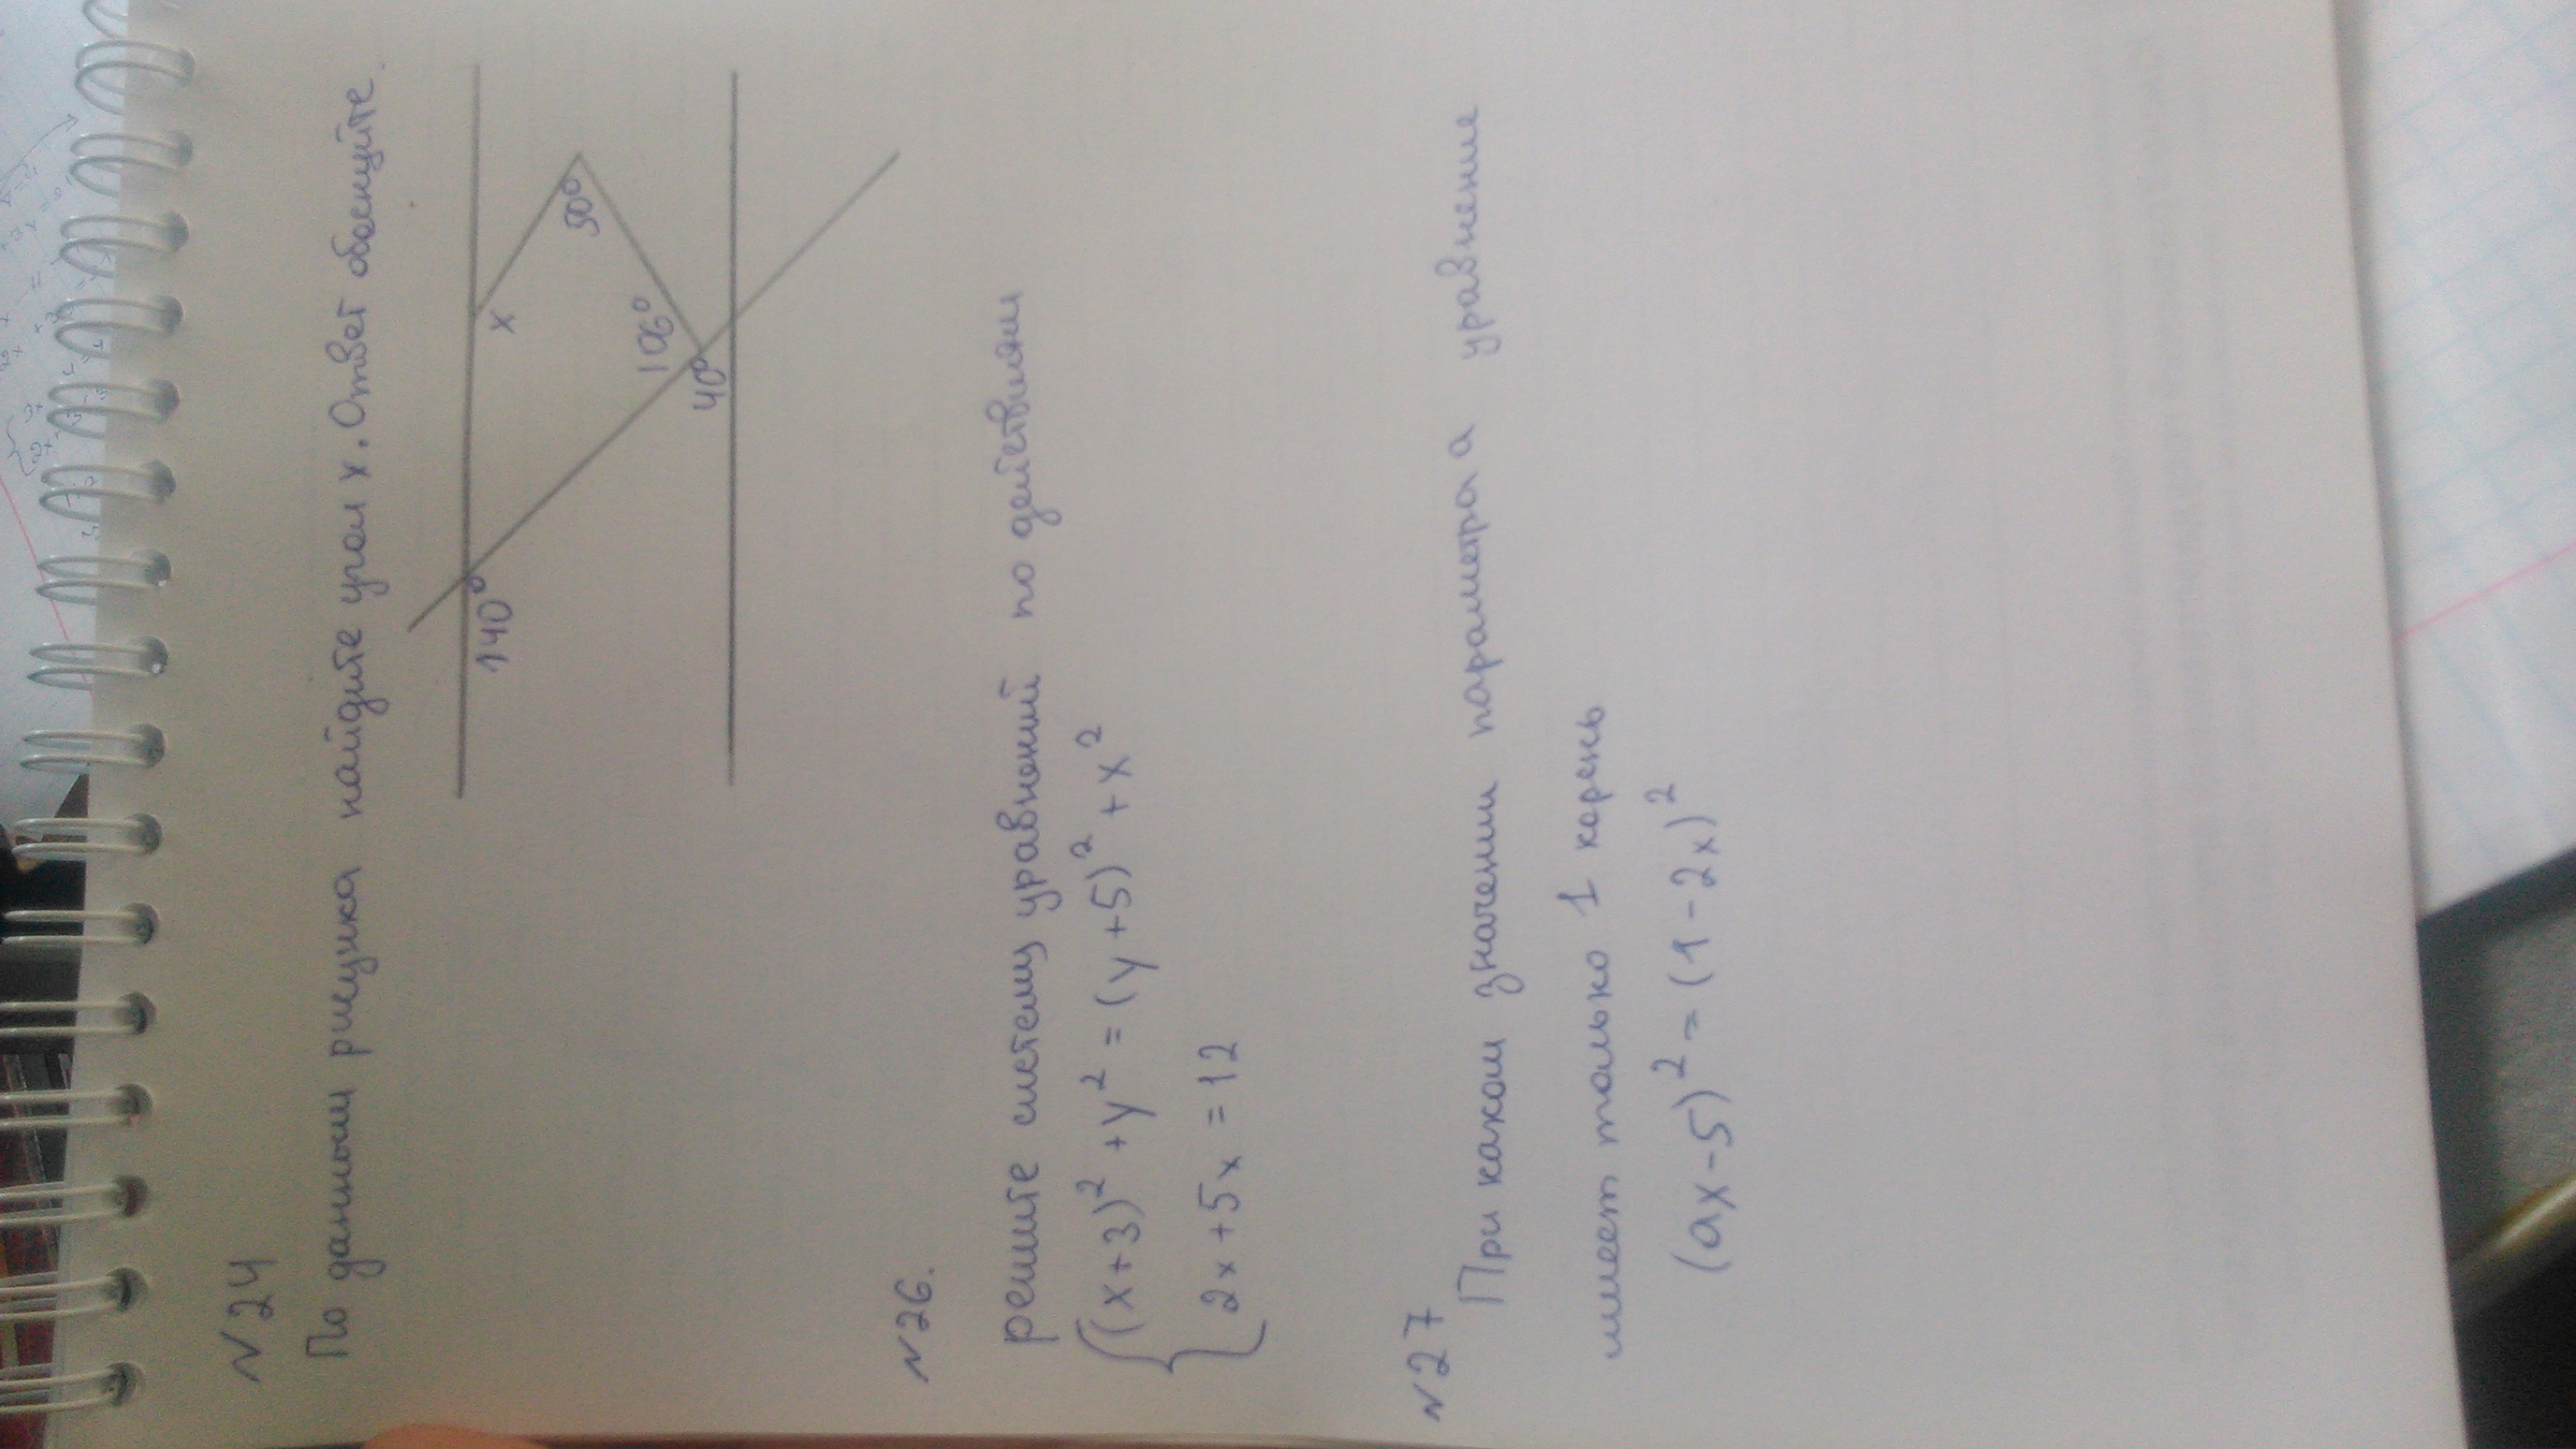 N24
По данным рисунка найдите угол x. Ответ обоснуйте.
140°
x
90°
106°
40°
N26.
решите систему уравнений по действиям
(x+3)²+y²=(y+5)²+x²
2x+5x=12
N27
При каком значении параметра а уравнение
имеет только 1 корень
(ax-5)²=(1-2x)²